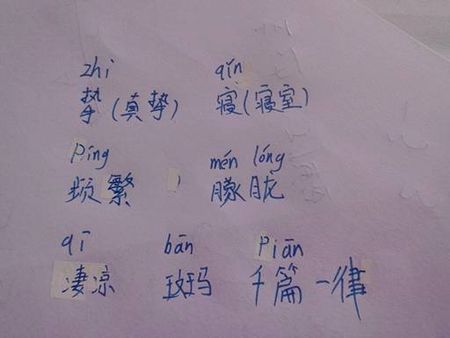 zhì qǐn
挚(真挚) 寝(寝室)
píng
频繁
mén lóng
朦胧
qī bān piān
凄凉 斑玛 千篇一律